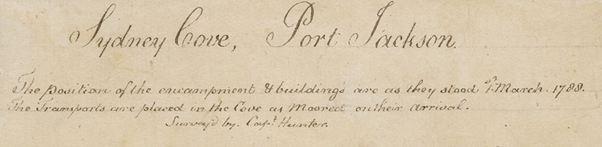 Sydney Cove, Port Jackson.
The position of the encampment & buildings are as they stood 1st March 1788.
The Transports are placed in the Cove as Moored on their arrival.
Survey'd by Capt. Hunter.